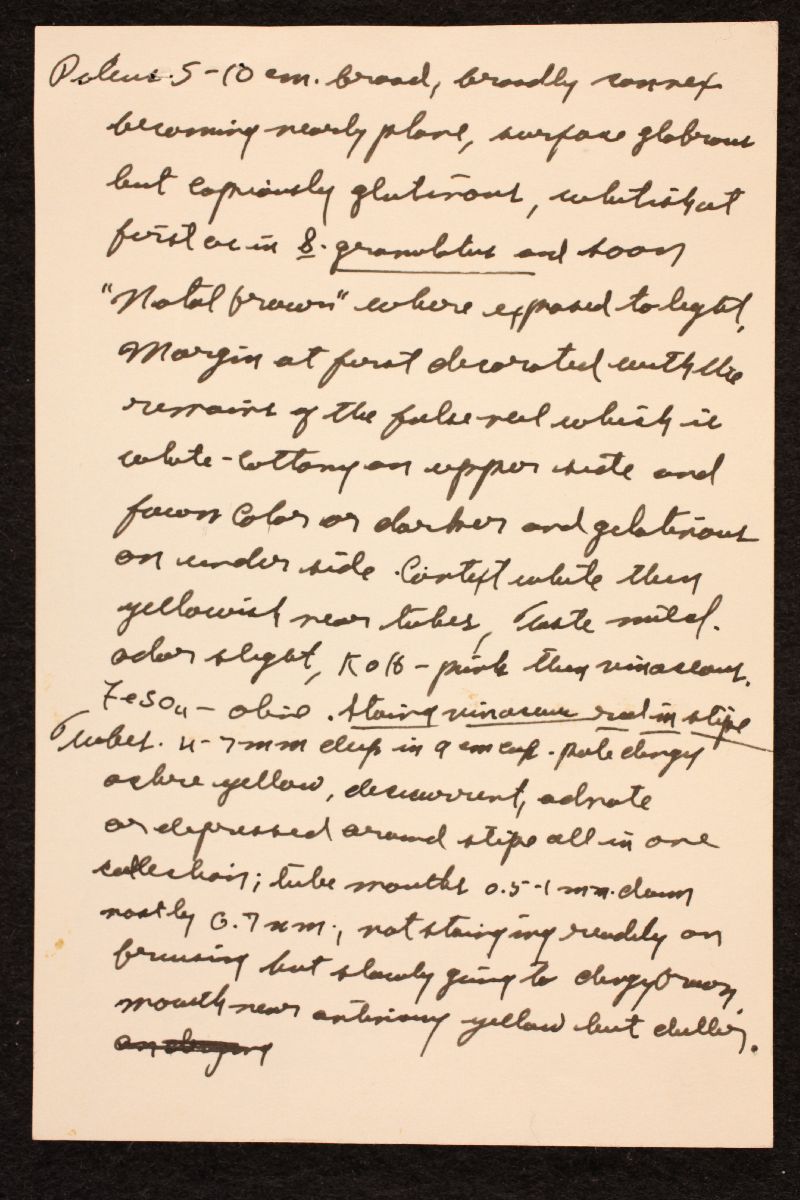 Pileus 5-10 cm. broad, broadly convex
becoming nearly plane, surface glabrous
but copiously glutinous, whitish at
first as in S. granulatus and soon
"Natal brown" where exposed to light,
Margin at first decorated with the
remains of the false veil which is
white-cottony on upper side and
fawn color or darker and gelatinous
on under side. Context white then
yellowish near tubes, Taste mild.
odor slight, KOH - pink then vinaceous.
FeSO4 - olive. Staing vinaceous red in stipe
Tubes. 4-7 mm deep in 9 cm cap. pale dingy
ochre yellow, decurrent, adnate
or depressed around stipe all in one
collection; tube mouths 0.5-1 mm. diam
mostly 0.7 mm., not staining readily on
bruising but slowly going to dingy brown,
mouth near antimony yellow but duller.